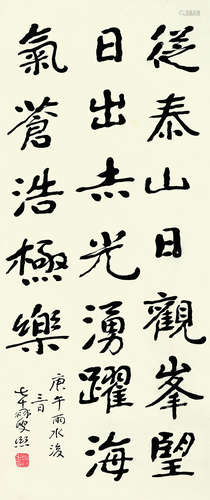 従泰山日觀峯望
日出赤光湧躍海
氣蒼浩極樂
庚午雨水後
三日